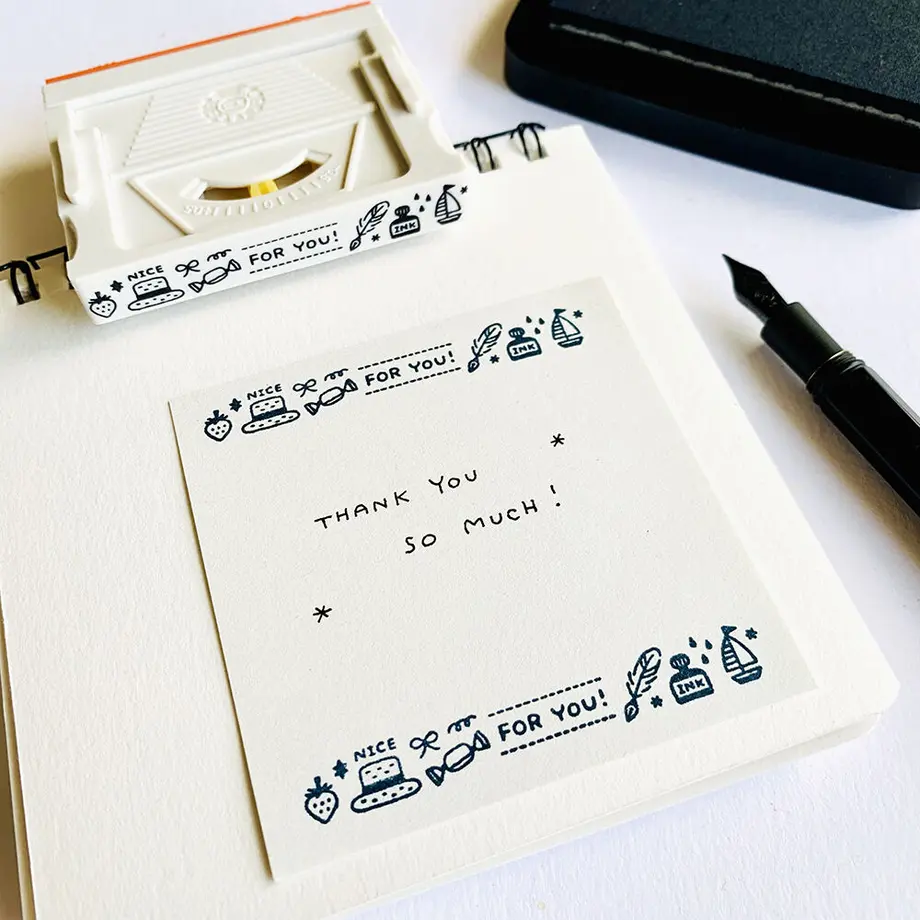 NICE
FOR YOU!
INK
NICE
FOR YOU!
INK
THANK YOU
SO MUCH!
NICE
FOR YOU!
INK